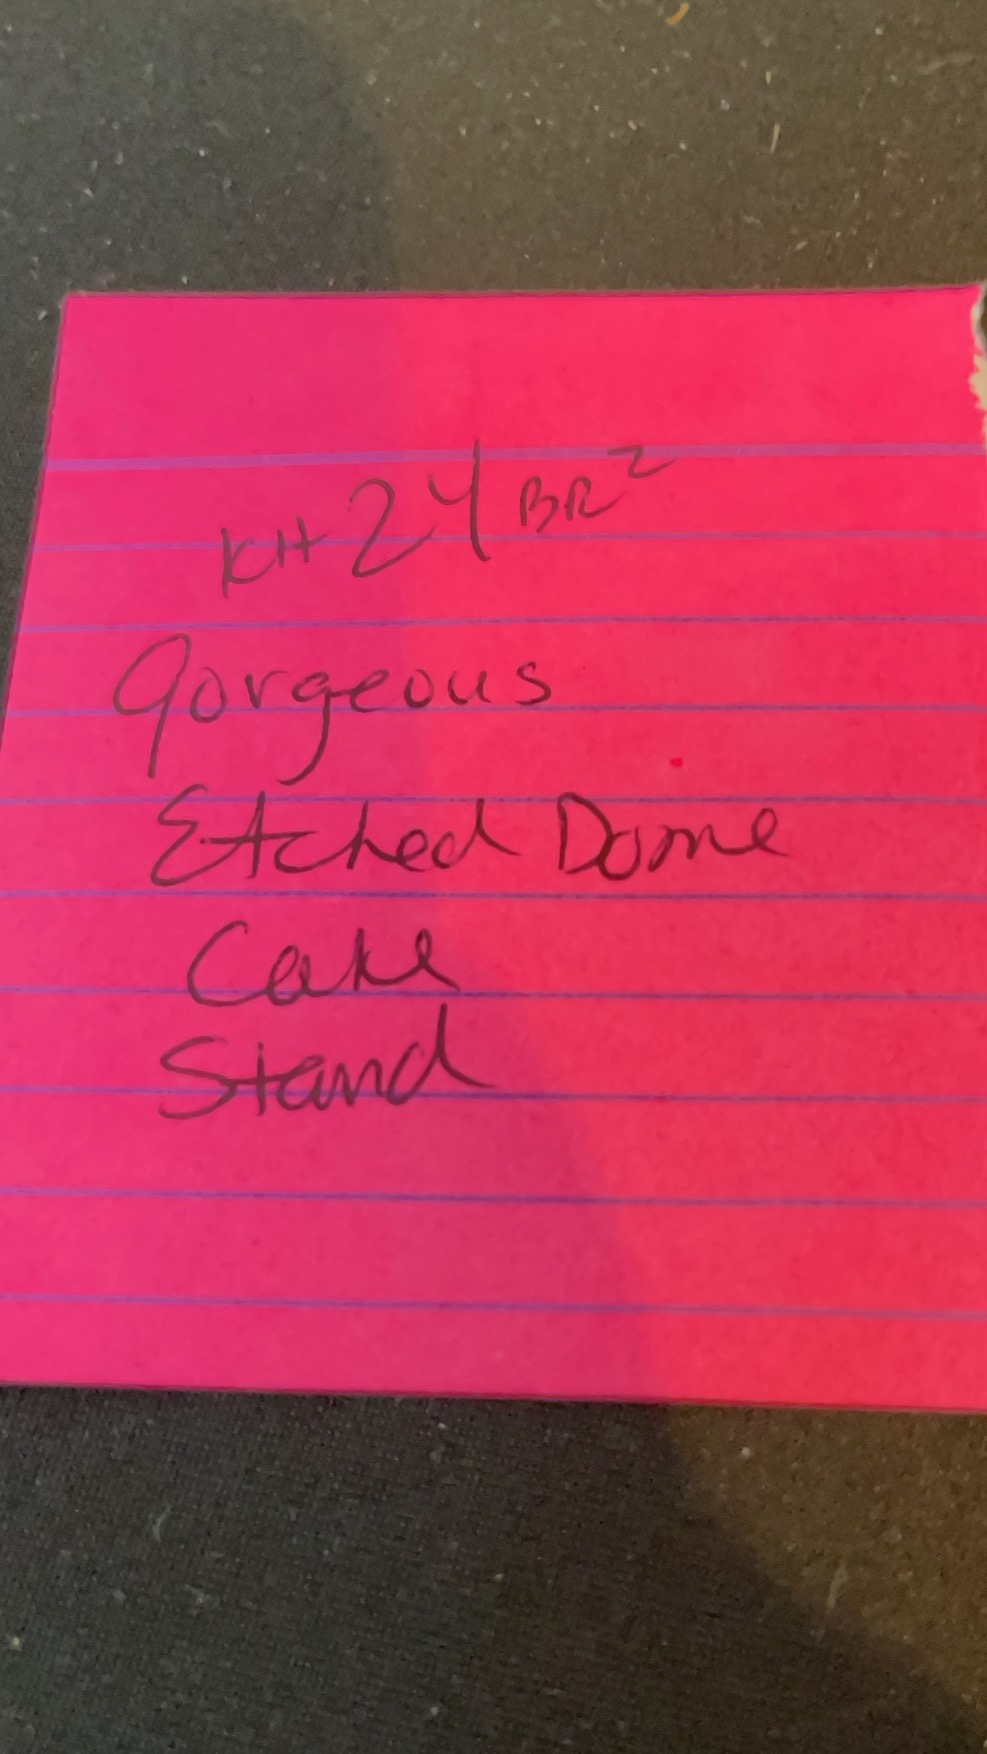 KH 24 BR²
gorgeous
Etched Dome
Cake
Stand